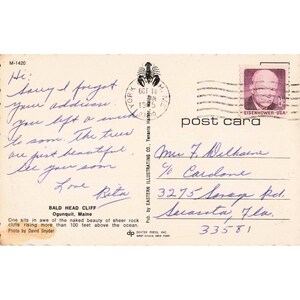 M-1420
Hi:
Sorry I forgot
your address.
you left a week
to soon. The trees
are just beautiful
see you soon
Love
Rita
BALD HEAD CLIFF
Ogunquit, Maine
One sits in awe of the naked beauty of sheer rock
cliffs rising more than 100 feet above the ocean.
Photo by David Snyder
Pub. by EASTERN ILLUSTRATING CO., Tenants Harbor, Maine
dp DEXTER PRESS, INC.
WEST NYACK, NEW YORK
YORK
OCT 11
PM
EISENHOWER·USA
post card
Mrs F.
c/o
3275
Sarasota, Fla.
33581